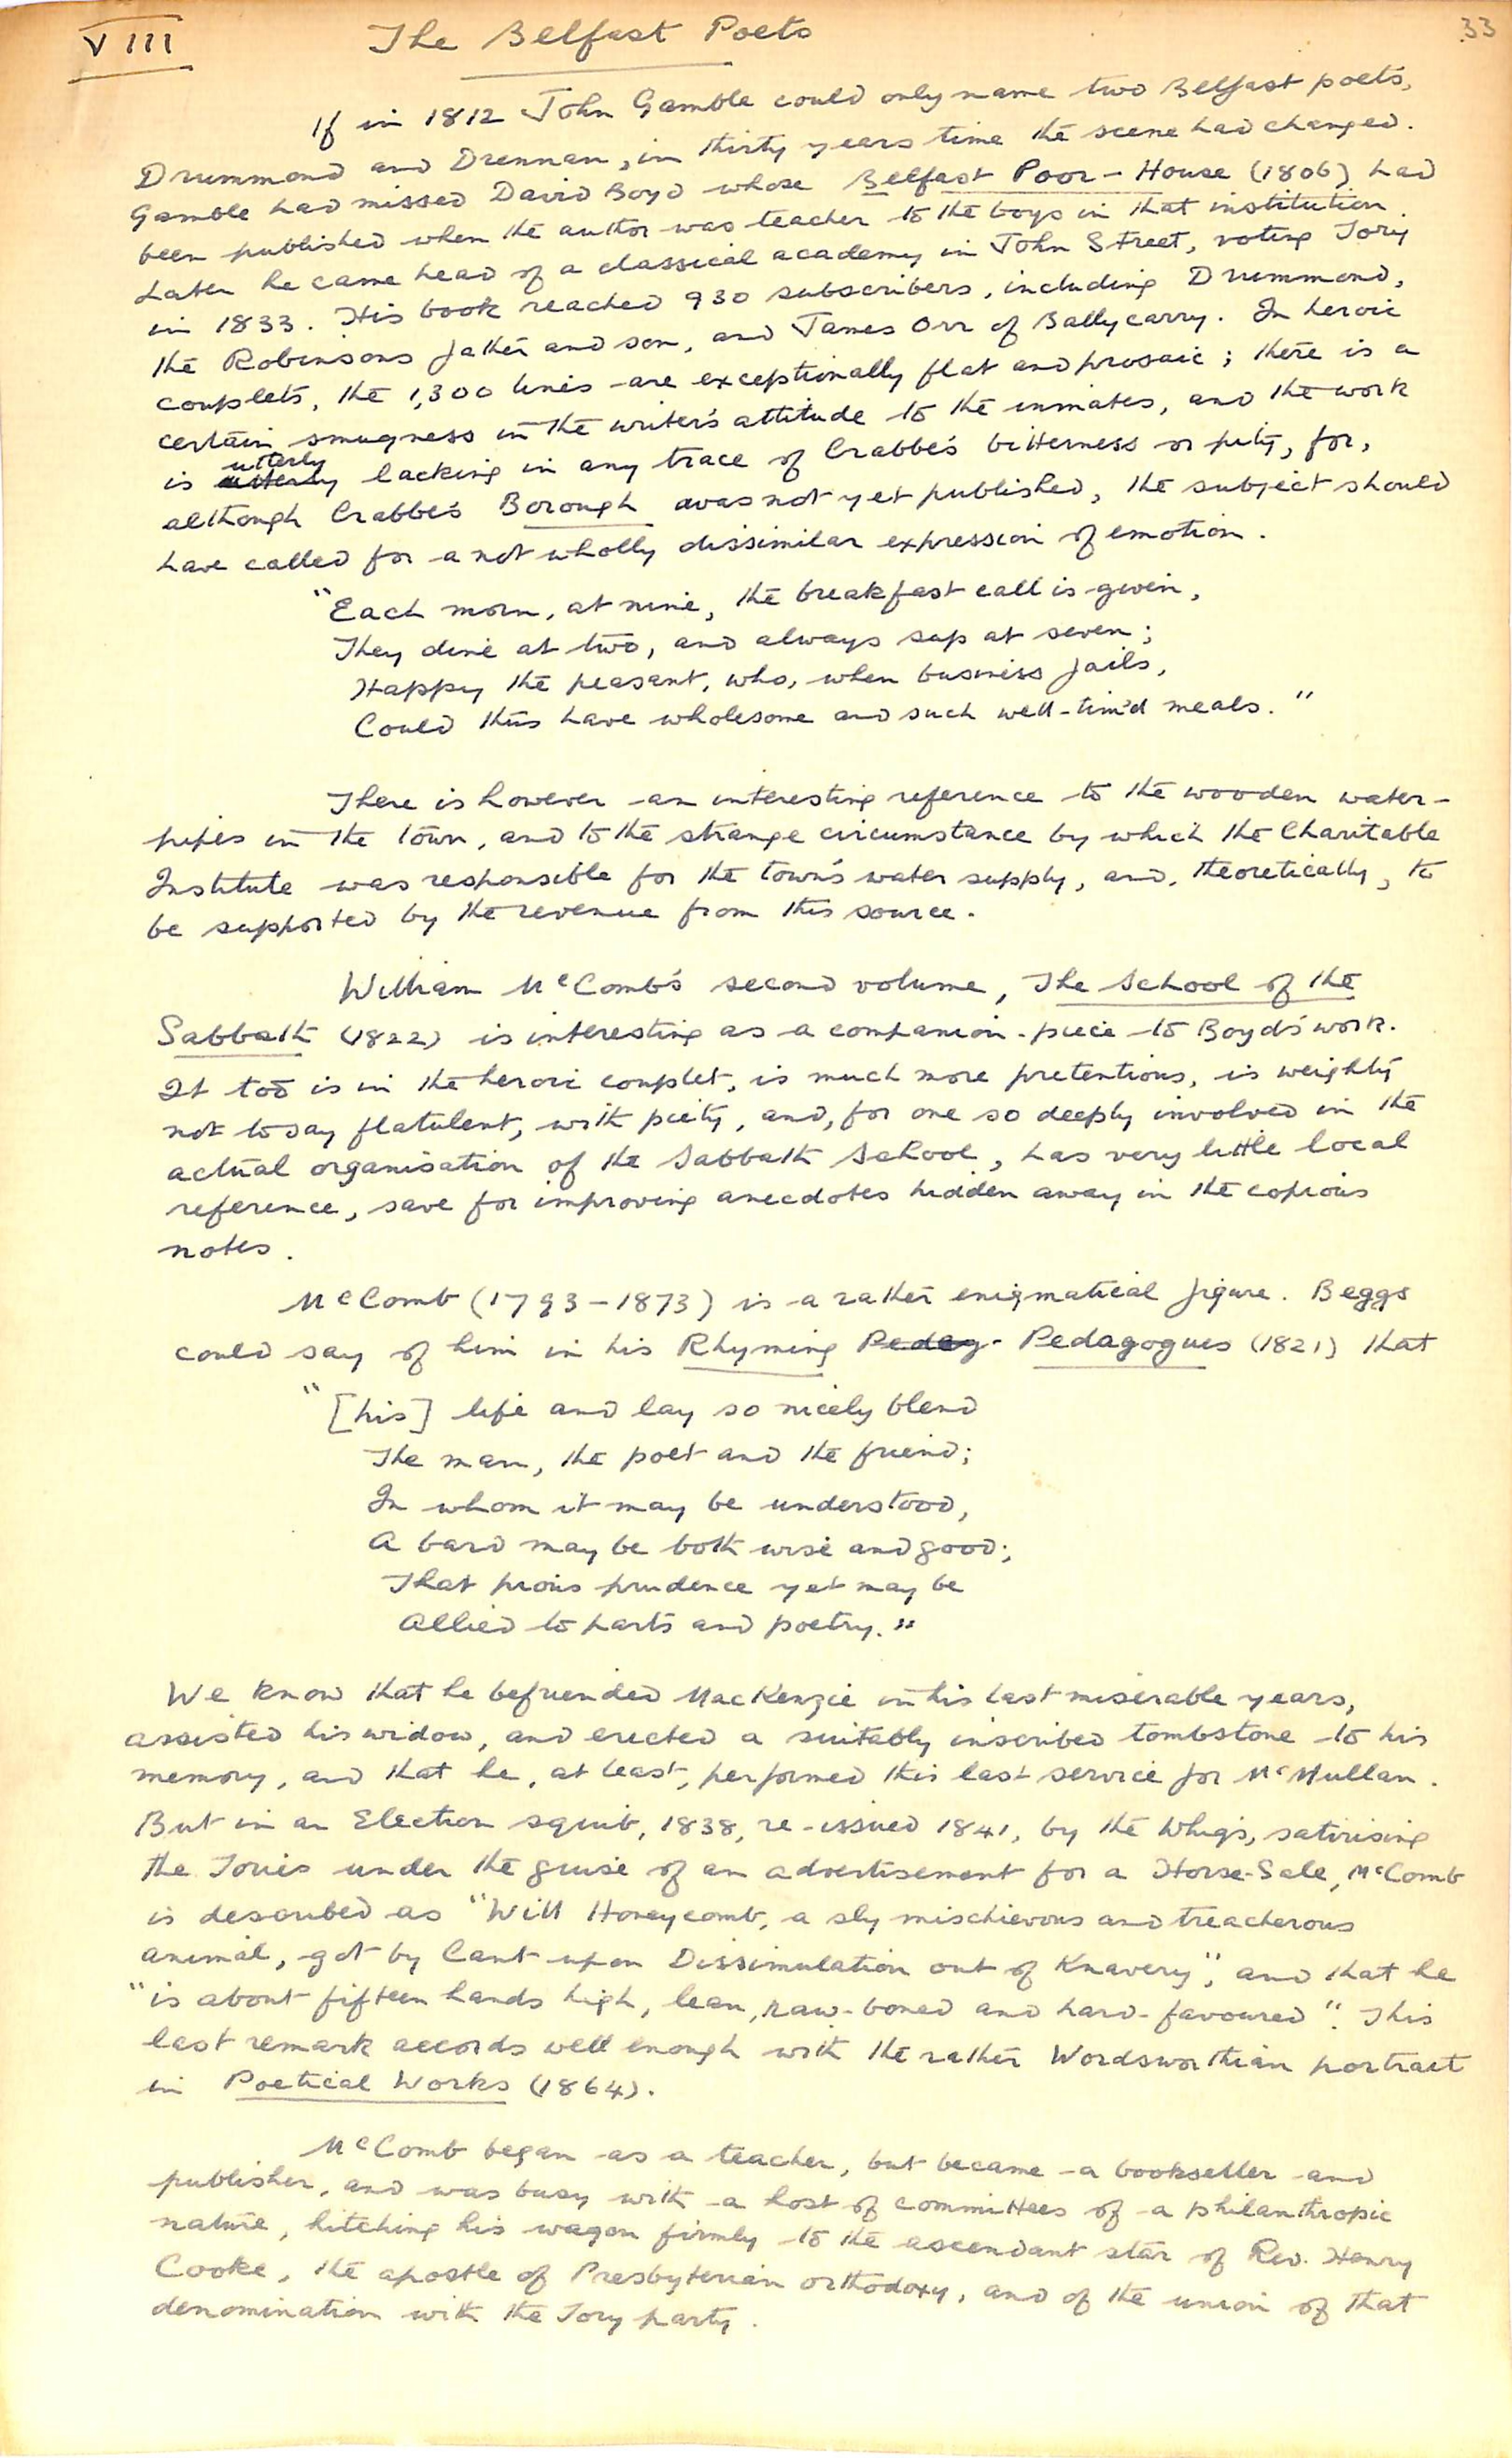 VIII The Belfast Poets 33
If in 1812 John Gamble could only name two Belfast poets,
Drummond and Drennan, in thirty years time the scene had changed.
Gamble had missed David Boyd whose Belfast Poor-House (1806) had
been published when the author was teacher to the boys in that institution.
Later he came head of a classical academy in John Street, voting Tory
in 1833. His book reached 930 subscribers, including Drummond,
the Robinsons father and son, and James Orr of Ballycarry. In heroic
couplets, the 1,300 lines are exceptionally flat and prosaic; there is a
certain smugness in the writer's attitude to the inmates, and the work
is utterly lacking in any trace of Crabbe's bitterness or pity, for,
although Crabbe's Borough was not yet published, the subject should
have called for a not wholly dissimilar expression of emotion.
"Each morn, at nine, the breakfast call is given,
They dine at two, and always sup at seven;
Happy the peasant, who, when business fails,
Could thus have wholesome and such well-tim'd meals."
There is however an interesting reference to the wooden water-
pipes in the town, and to the strange circumstance by which the Charitable
Institute was responsible for the town's water supply, and, theoretically, to
be supported by the revenue from this source.
William McComb's second volume, The School of the
Sabbath (1822) is interesting as a companion-piece to Boyd's work.
It too is in the heroic couplet, is much more pretentious, is weighty
not to say flatulent, with piety, and, for one so deeply involved in the
actual organisation of the Sabbath School, has very little local
reference, save for improving anecdotes hidden away in the copious
notes.
McComb (1793-1873) is a rather enigmatical figure. Beggs
could say of him in his Rhyming Pedag- Pedagogues (1821) that
"[his] life and lay so nicely blend
The man, the poet and the friend;
In whom it may be understood,
A bard may be both wise and good;
That pious prudence yet may be
Allied to parts and poetry."
We know that he befriended MacKenzie in his last miserable years,
assisted his widow, and erected a suitably inscribed tombstone to his
memory, and that he, at least, performed this last service for McMullan.
But in an Election squib, 1838, re-issued 1841, by the Whigs, satirising
the Tories under the guise of an advertisement for a Horse-Sale, McComb
is described as "Will Honeycomb, a sly mischievous and treacherous
animal, got by Cant upon Dissimulation out of Knavery", and that he
"is about fifteen hands high, lean, raw-boned and hard-favoured". This
last remark accords well enough with the rather Wordsworthian portrait
in Poetical Works (1864).
McComb began as a teacher, but became a bookseller and
publisher, and was busy with a host of committees of a philanthropic
nature, hitching his wagon firmly to the ascendant star of Rev. Henry
Cooke, the apostle of Presbyterian orthodoxy, and of the union of that
denomination with the Tory party.